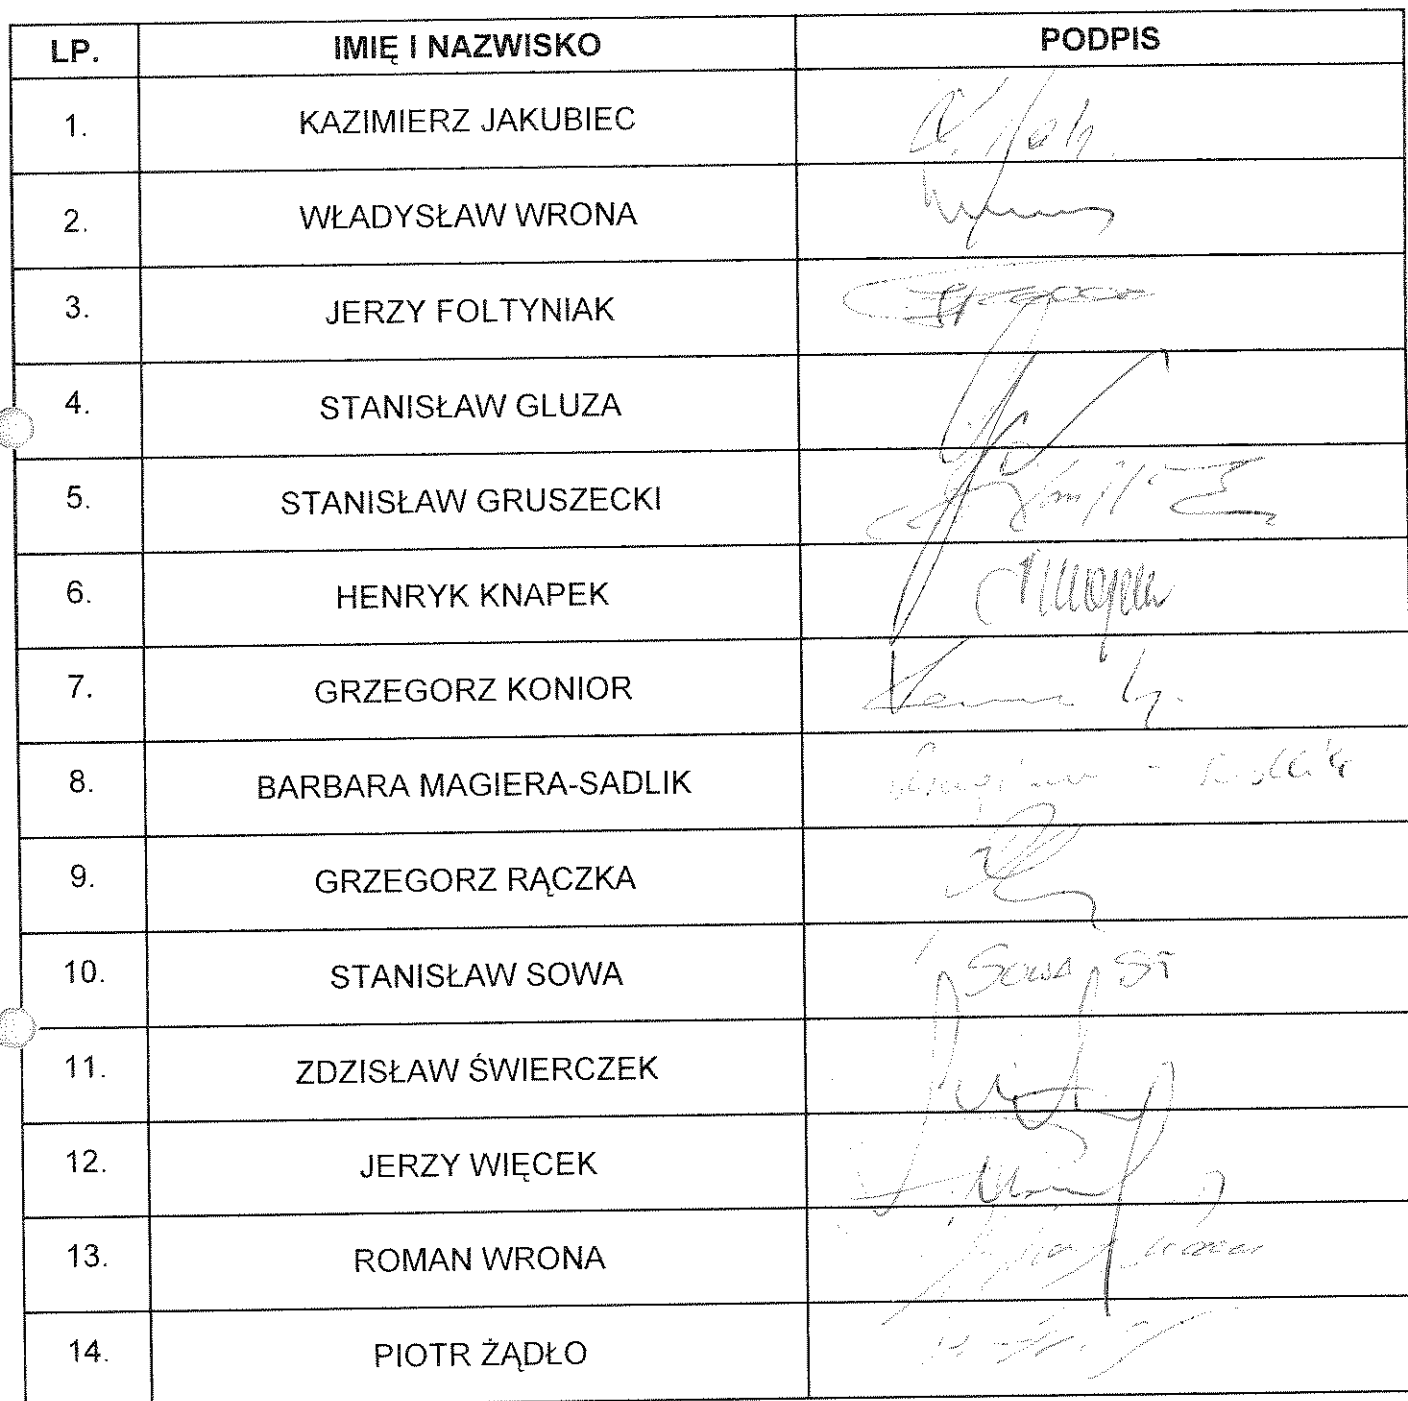 LP. IMIĘ I NAZWISKO PODPIS
1. KAZIMIERZ JAKUBIEC
2. WŁADYSŁAW WRONA
3. JERZY FOLTYNIAK
4. STANISŁAW GLUZA
5. STANISŁAW GRUSZECKI
6. HENRYK KNAPEK
7. GRZEGORZ KONIOR
8. BARBARA MAGIERA-SADLIK
9. GRZEGORZ RĄCZKA
10. STANISŁAW SOWA SOWA ST
11. ZDZISŁAW ŚWIERCZEK
12. JERZY WIĘCEK
13. ROMAN WRONA
14. PIOTR ŻĄDŁO